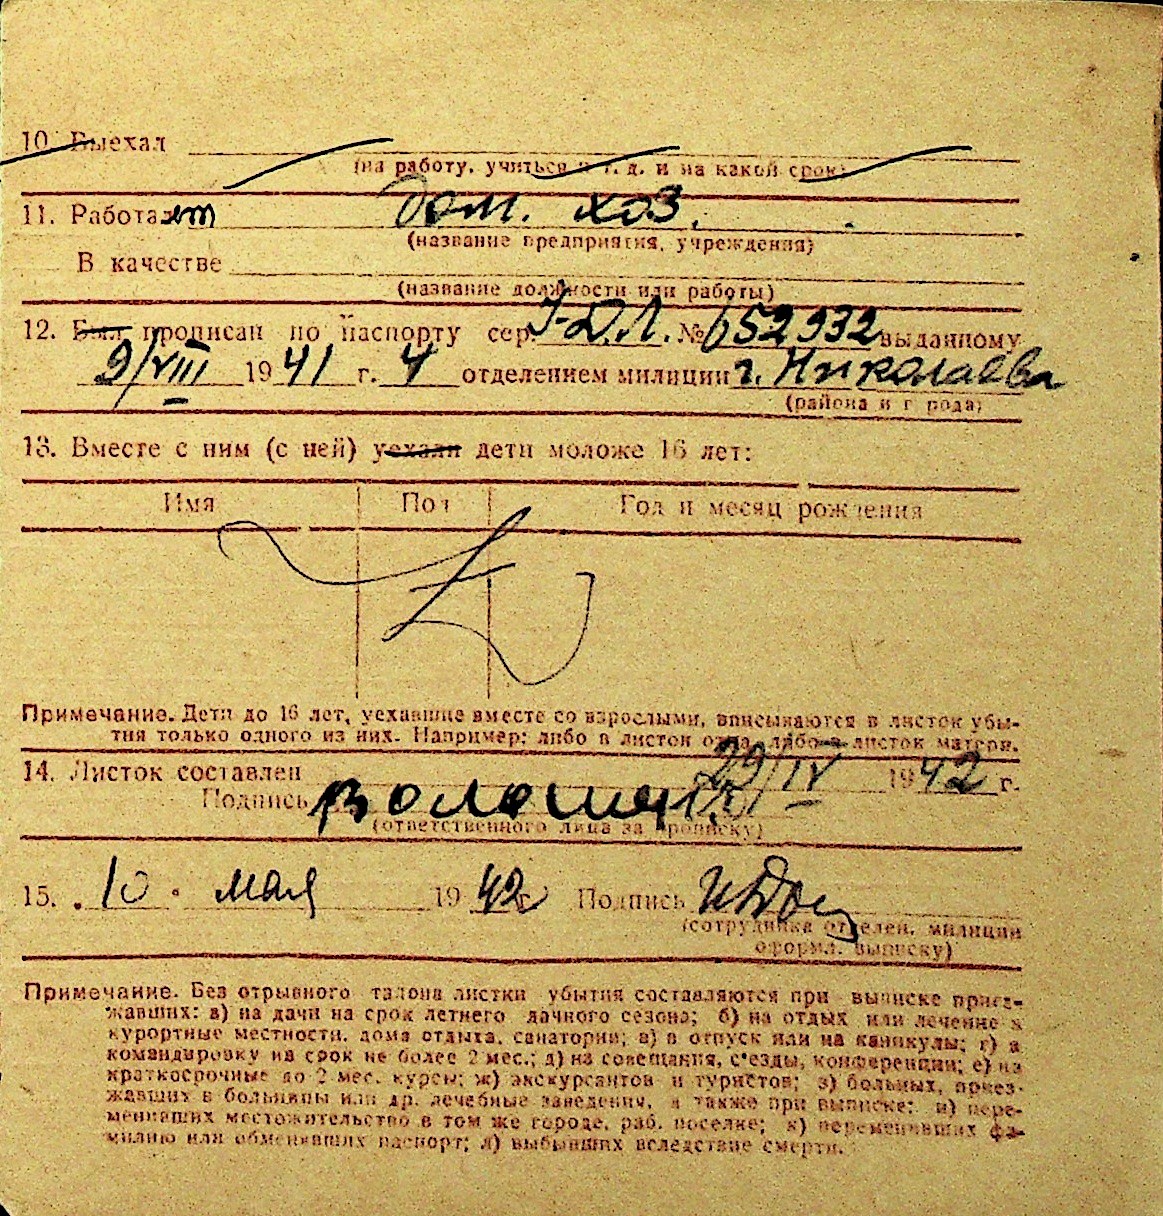 10. Выехал
(на работу, учиться и т. д. и на какой срок)
11. Работает дом. хоз.
(название предприятия, учреждения)
В качестве
(название должности или работы)
12. Был прописан по паспорту сер. I-ДЛ. № 652932 выданному
9/VIII 1941 г. 4 отделением милиции г. Николаева
(района и города)
13. Вместе с ним (с ней) уехали дети моложе 16 лет:
Имя Пол Год и месяц рождения
Примечание. Дети до 16 лет, уехавшие вместе со взрослыми, вписываются в листок убы-
тия только одного из них. Например: либо в листок отца, либо в листок матери.
14. Листок составлен 29/IV 1942 г.
Подпись
(ответственного лица за прописку)
15. 10 мая 1942 г. Подпись
(сотрудника отделен. милиции
оформл. выписку)
Примечание. Без отрывного талона листки убытия составляются при выписке приез-
жавших: а) на дачи на срок летнего дачного сезона; б) на отдых или лечение в
курортные местности, дома отдыха, санатории; в) в отпуск или на каникулы; г) в
командировку на срок не более 2 мес.; д) на совещания, с'езды, конференции; е) на
краткосрочные до 2 мес. курсы; ж) экскурсантов и туристов; з) больных, приез-
жавших в больницы или др. лечебные заведения, а также при выписке: и) пере-
менивших местожительство в том же городе, раб. поселке; к) переменивших фа-
милию или обменявших паспорт; л) выбывших вследствие смерти.